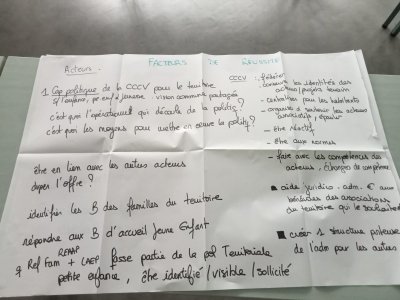 FACTEURS DE RÉUSSITE
Acteurs.
1 Cap politique de la CCCV pour le territoire
s/ enfance, pte enf et jeunesse : vision commune partagée
c'est quoi l'opérationnel qui découle de la politiq ?
c'est quoi les moyens pour mettre en œuvre la politiq ?
être en lien avec les autres acteurs
l'offre ?
identifier les B des familles du territoire
répondre aux B d'accueil jeune Enfant
REAAP
Ref Fam + LAEP fasse partie de la pol Territoriale
petite enfance, être identifié/visible/sollicité
CCCV : fédérer
les identités des
acteurs/projets terrain
- centralités pour les habitants
associatifs,
- être réactif
- être aux normes
- faire avec les compétences des
acteurs, Échanges de compétence
■ aide juridico-adm. € aux
bénévoles des associations
du territoire qui le souhaitent
■ créer 1 structure porteuse
de l'adm pour les autres